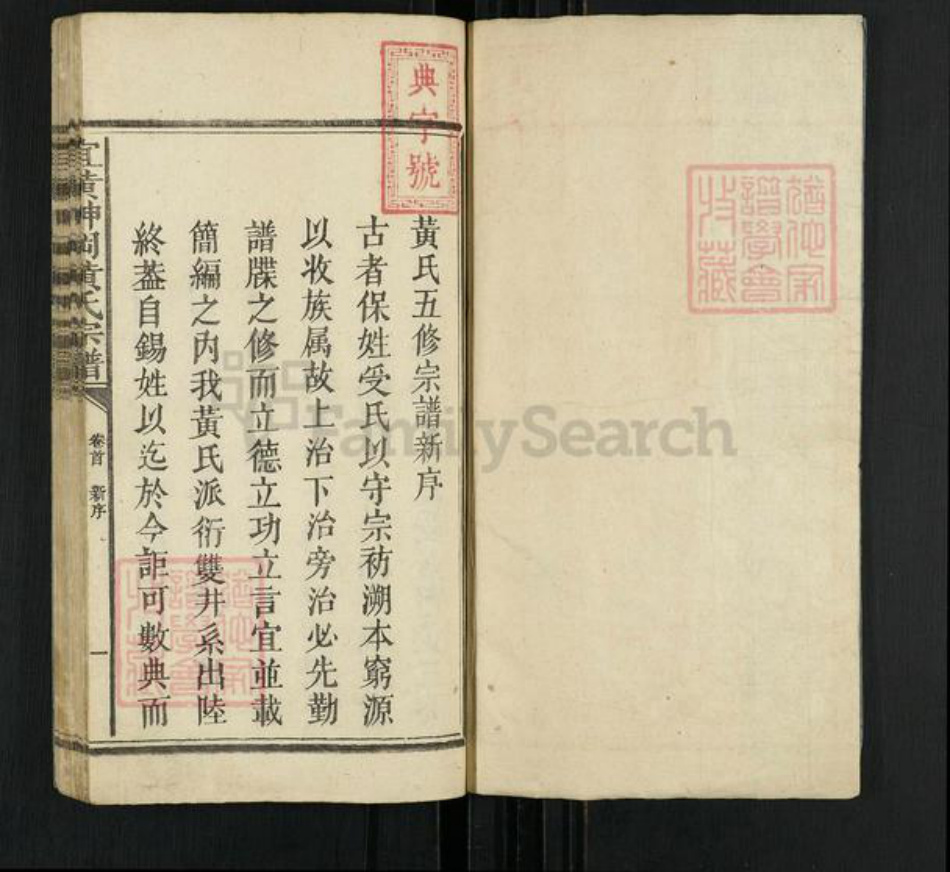 典字號
黃氏五修宗譜新序
古者保姓受氏以守宗祊溯本窮源
以收族属故上治下治旁治必先勤
譜牒之修而立德立功立言宜並載
簡編之內我黃氏派衍雙井系出陸
終葢自錫姓以迄於今詎可數典而
宜黃神岡黃氏宗譜
卷首 新序
一
譜學會
收藏
FamilySearch